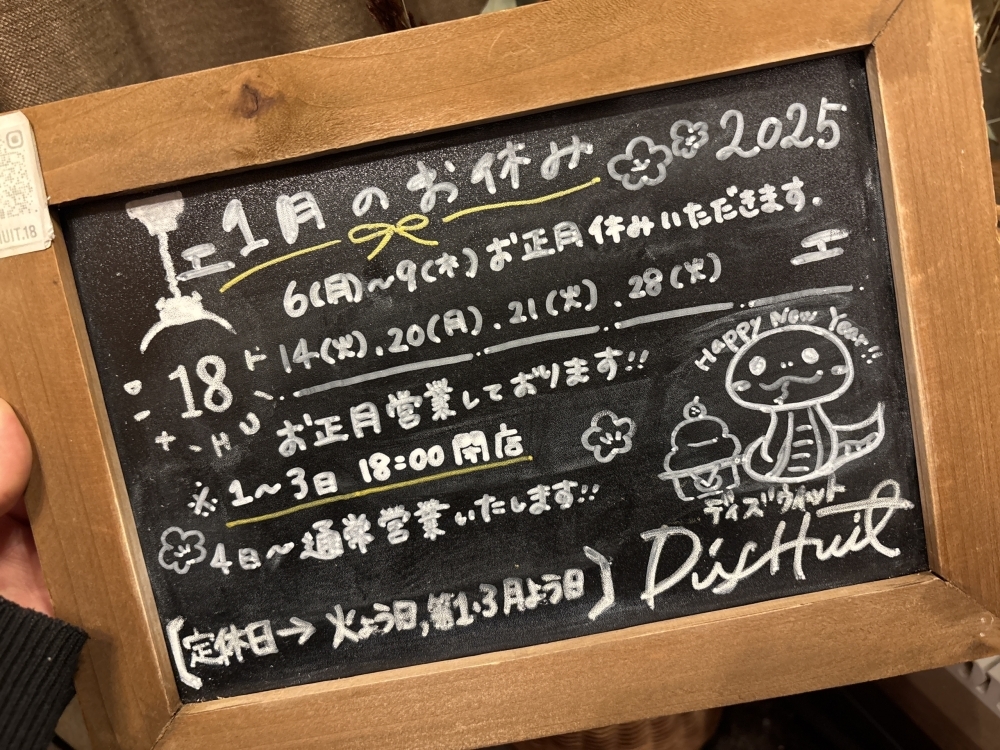 1月のお休み 2025
6(月)〜9(木)お正月休みいただきます.
14(火).20(月).21(火).28(火)
お正月営業しております!!
※1〜3日 18:00 閉店
4日〜通常営業いたします!!
[定休日→火よう日,第1・3月よう日]
Happy New Year!!
ディズウィット
DixHuit
18
HUIT.18